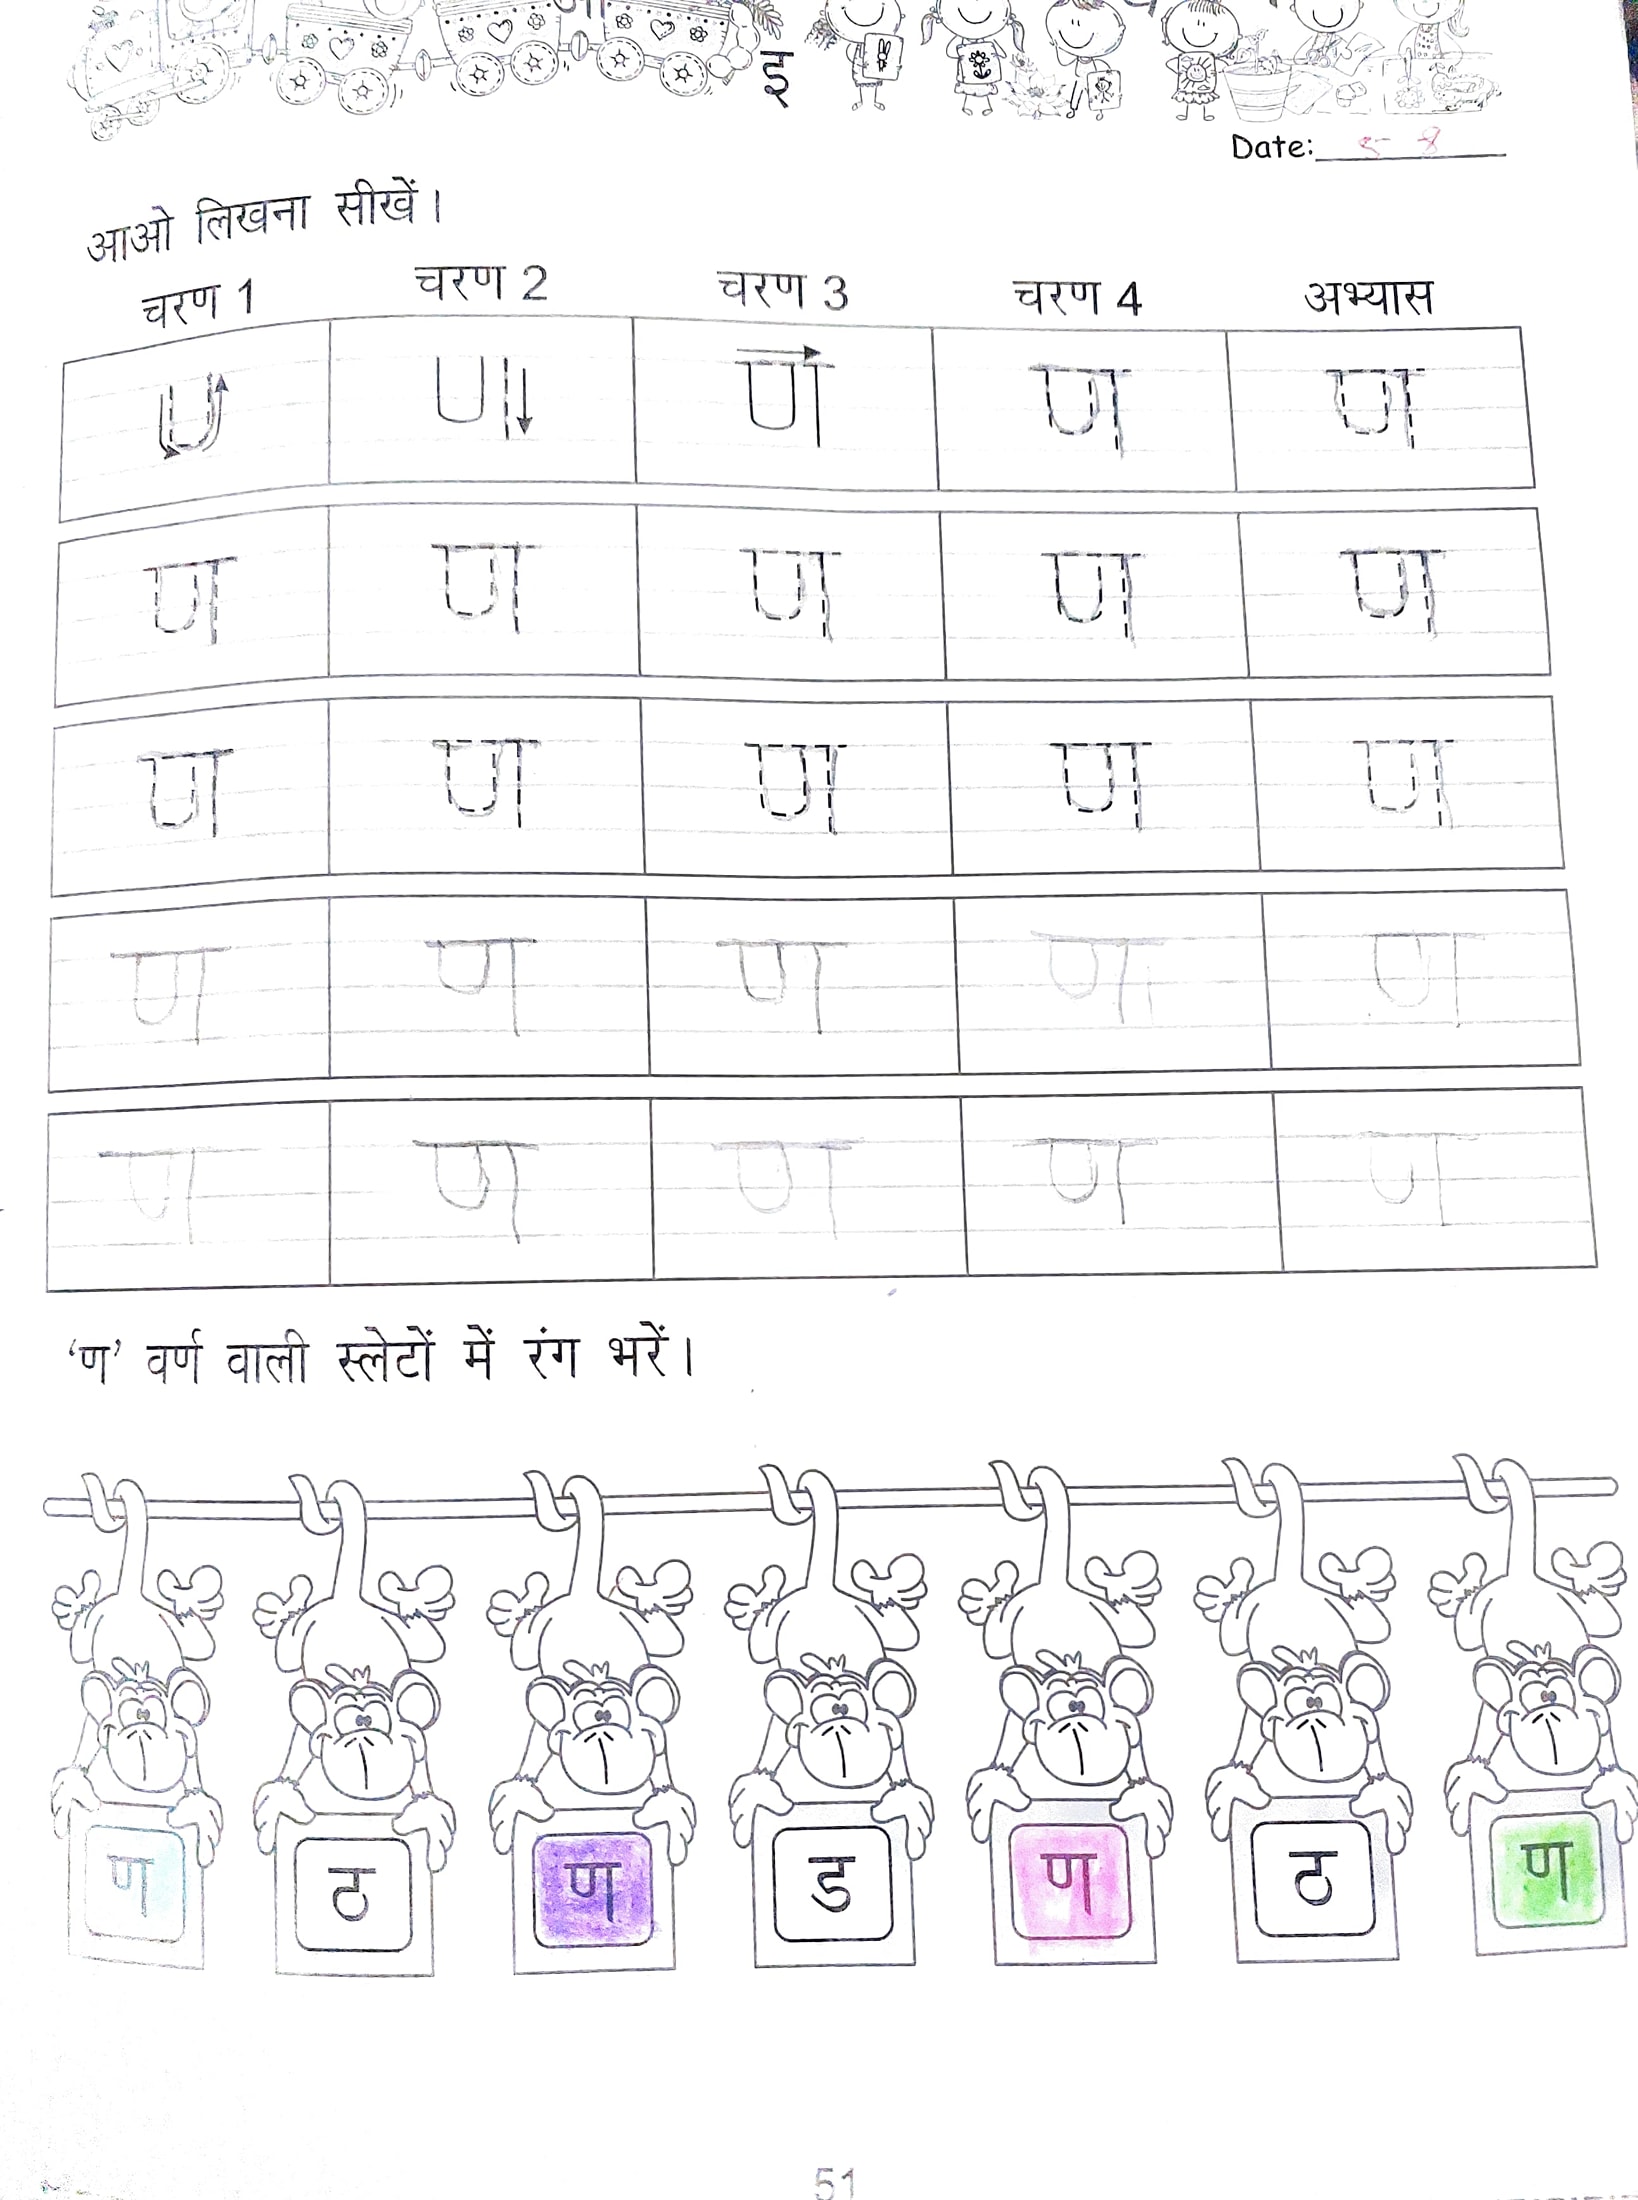 इ
Date: 5 8
आओ लिखना सीखें।
चरण 1 चरण 2 चरण 3 चरण 4 अभ्यास
ण ण ण
ण ण ण ण ण
ण ण ण ण ण
ण ण ण ण ण
ण ण ण ण ण
‘ण’ वर्ण वाली स्लेटों में रंग भरें।
ण ठ ण ड ण ठ ण
51